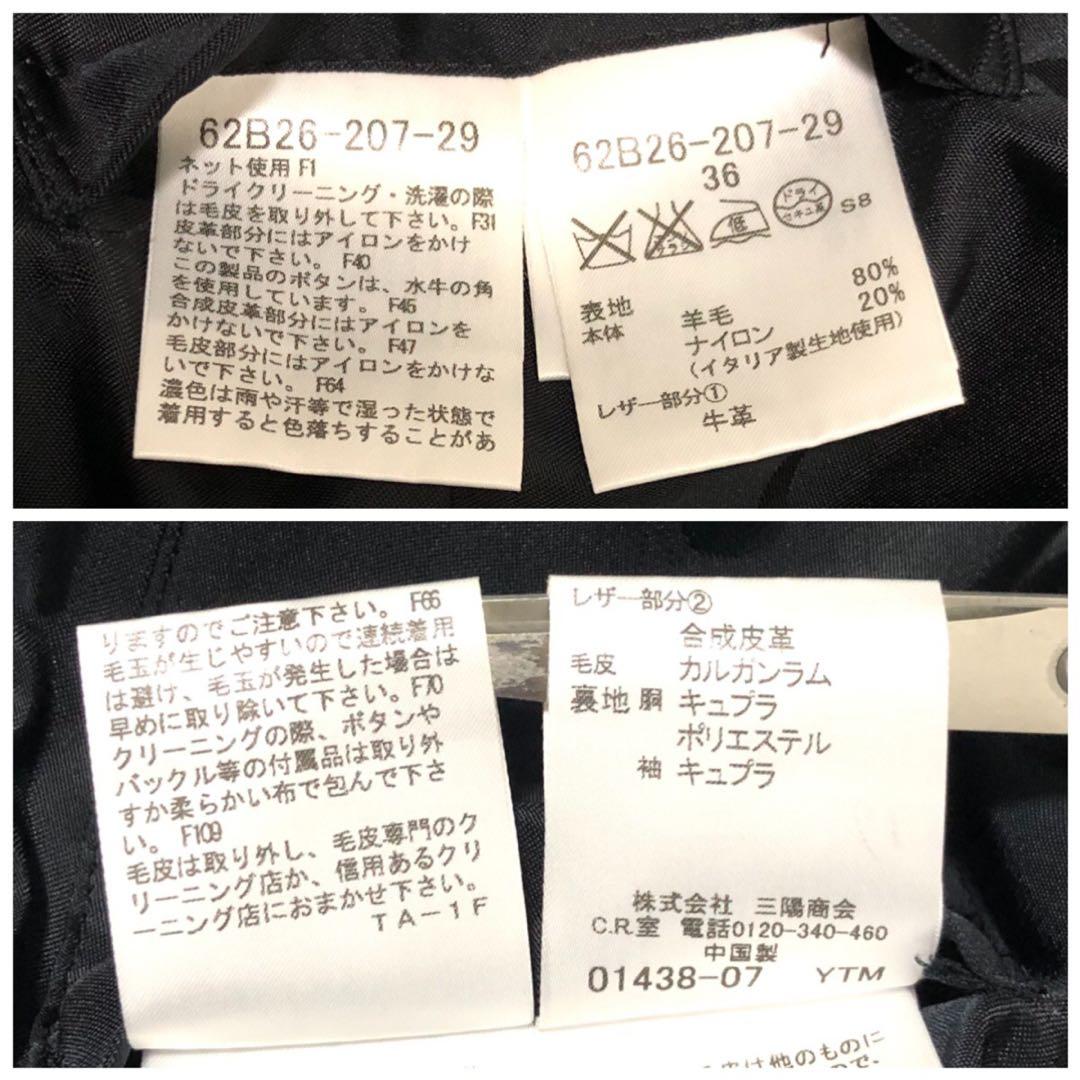 62B26-207-29
ネット使用 F1
ドライクリーニング・洗濯の際
は毛皮を取り外して下さい。F31
皮革部分にはアイロンをかけ
ないで下さい。 F40
この製品のボタンは、水牛の角
を使用しています。 F45
合成皮革部分にはアイロンを
かけないで下さい。 F47
毛皮部分にはアイロンをかけな
いで下さい。 F64
濃色は雨や汗等で湿った状態で
着用すると色落ちすることがあ
62B26-207-29
36
エンソ
サラシ
低
ドライ
セキユ系
S8
表地
本体 羊毛 80%
ナイロン 20%
(イタリア製生地使用)
レザー部分①
牛革
りますのでご注意下さい。 F66
毛玉が生じやすいので連続着用
は避け、毛玉が発生した場合は
早めに取り除いて下さい。F70
クリーニングの際、ボタンや
バックル等の付属品は取り外
すか柔らかい布で包んで下さ
い。 F109
毛皮は取り外し、毛皮専門のク
リーニング店か、信用あるクリ
ーニング店におまかせ下さい。
TA-1F
レザー部分②
合成皮革
毛皮 カルガンラム
裏地 胴 キュプラ
ポリエステル
袖 キュプラ
株式会社 三陽商会
C.R.室 電話0120-340-460
中国製
01438-07 YTM
は他のものに
ので、